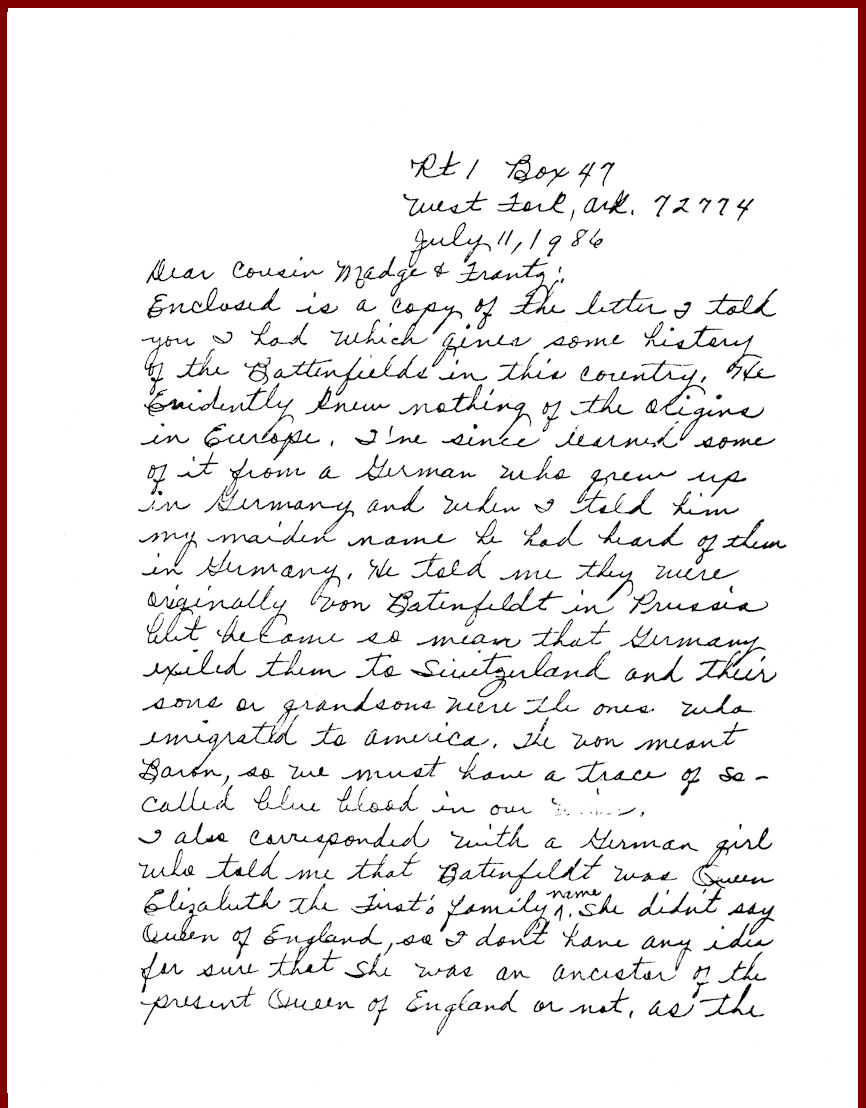 Rt 1 Box 47
West Fork, Ark. 72774
July 11, 1986
Dear Cousin Madge & Frantz:
Enclosed is a copy of the letter I told
you I had which gives some history
of the Battenfields in this country. He
Evidently knew nothing of the origins
in Europe. I've since learned some
of it from a German who grew up
in Germany and when I told him
my maiden name he had heard of them
in Germany. He told me they were
originally von Batenfeldt in Prussia
but became so mean that Germany
exiled them to Switzerland and their
sons or grandsons were the ones who
emigrated to America. The von meant
Baron, so we must have a trace of so-
called blue blood in our
I also corresponded with a German girl
who told me that Batenfeldt was Queen
Elizabeth the First's family name. She didn't say
Queen of England, so I don't have any idea
for sure that she was an ancestor of the
present Queen of England or not, as the